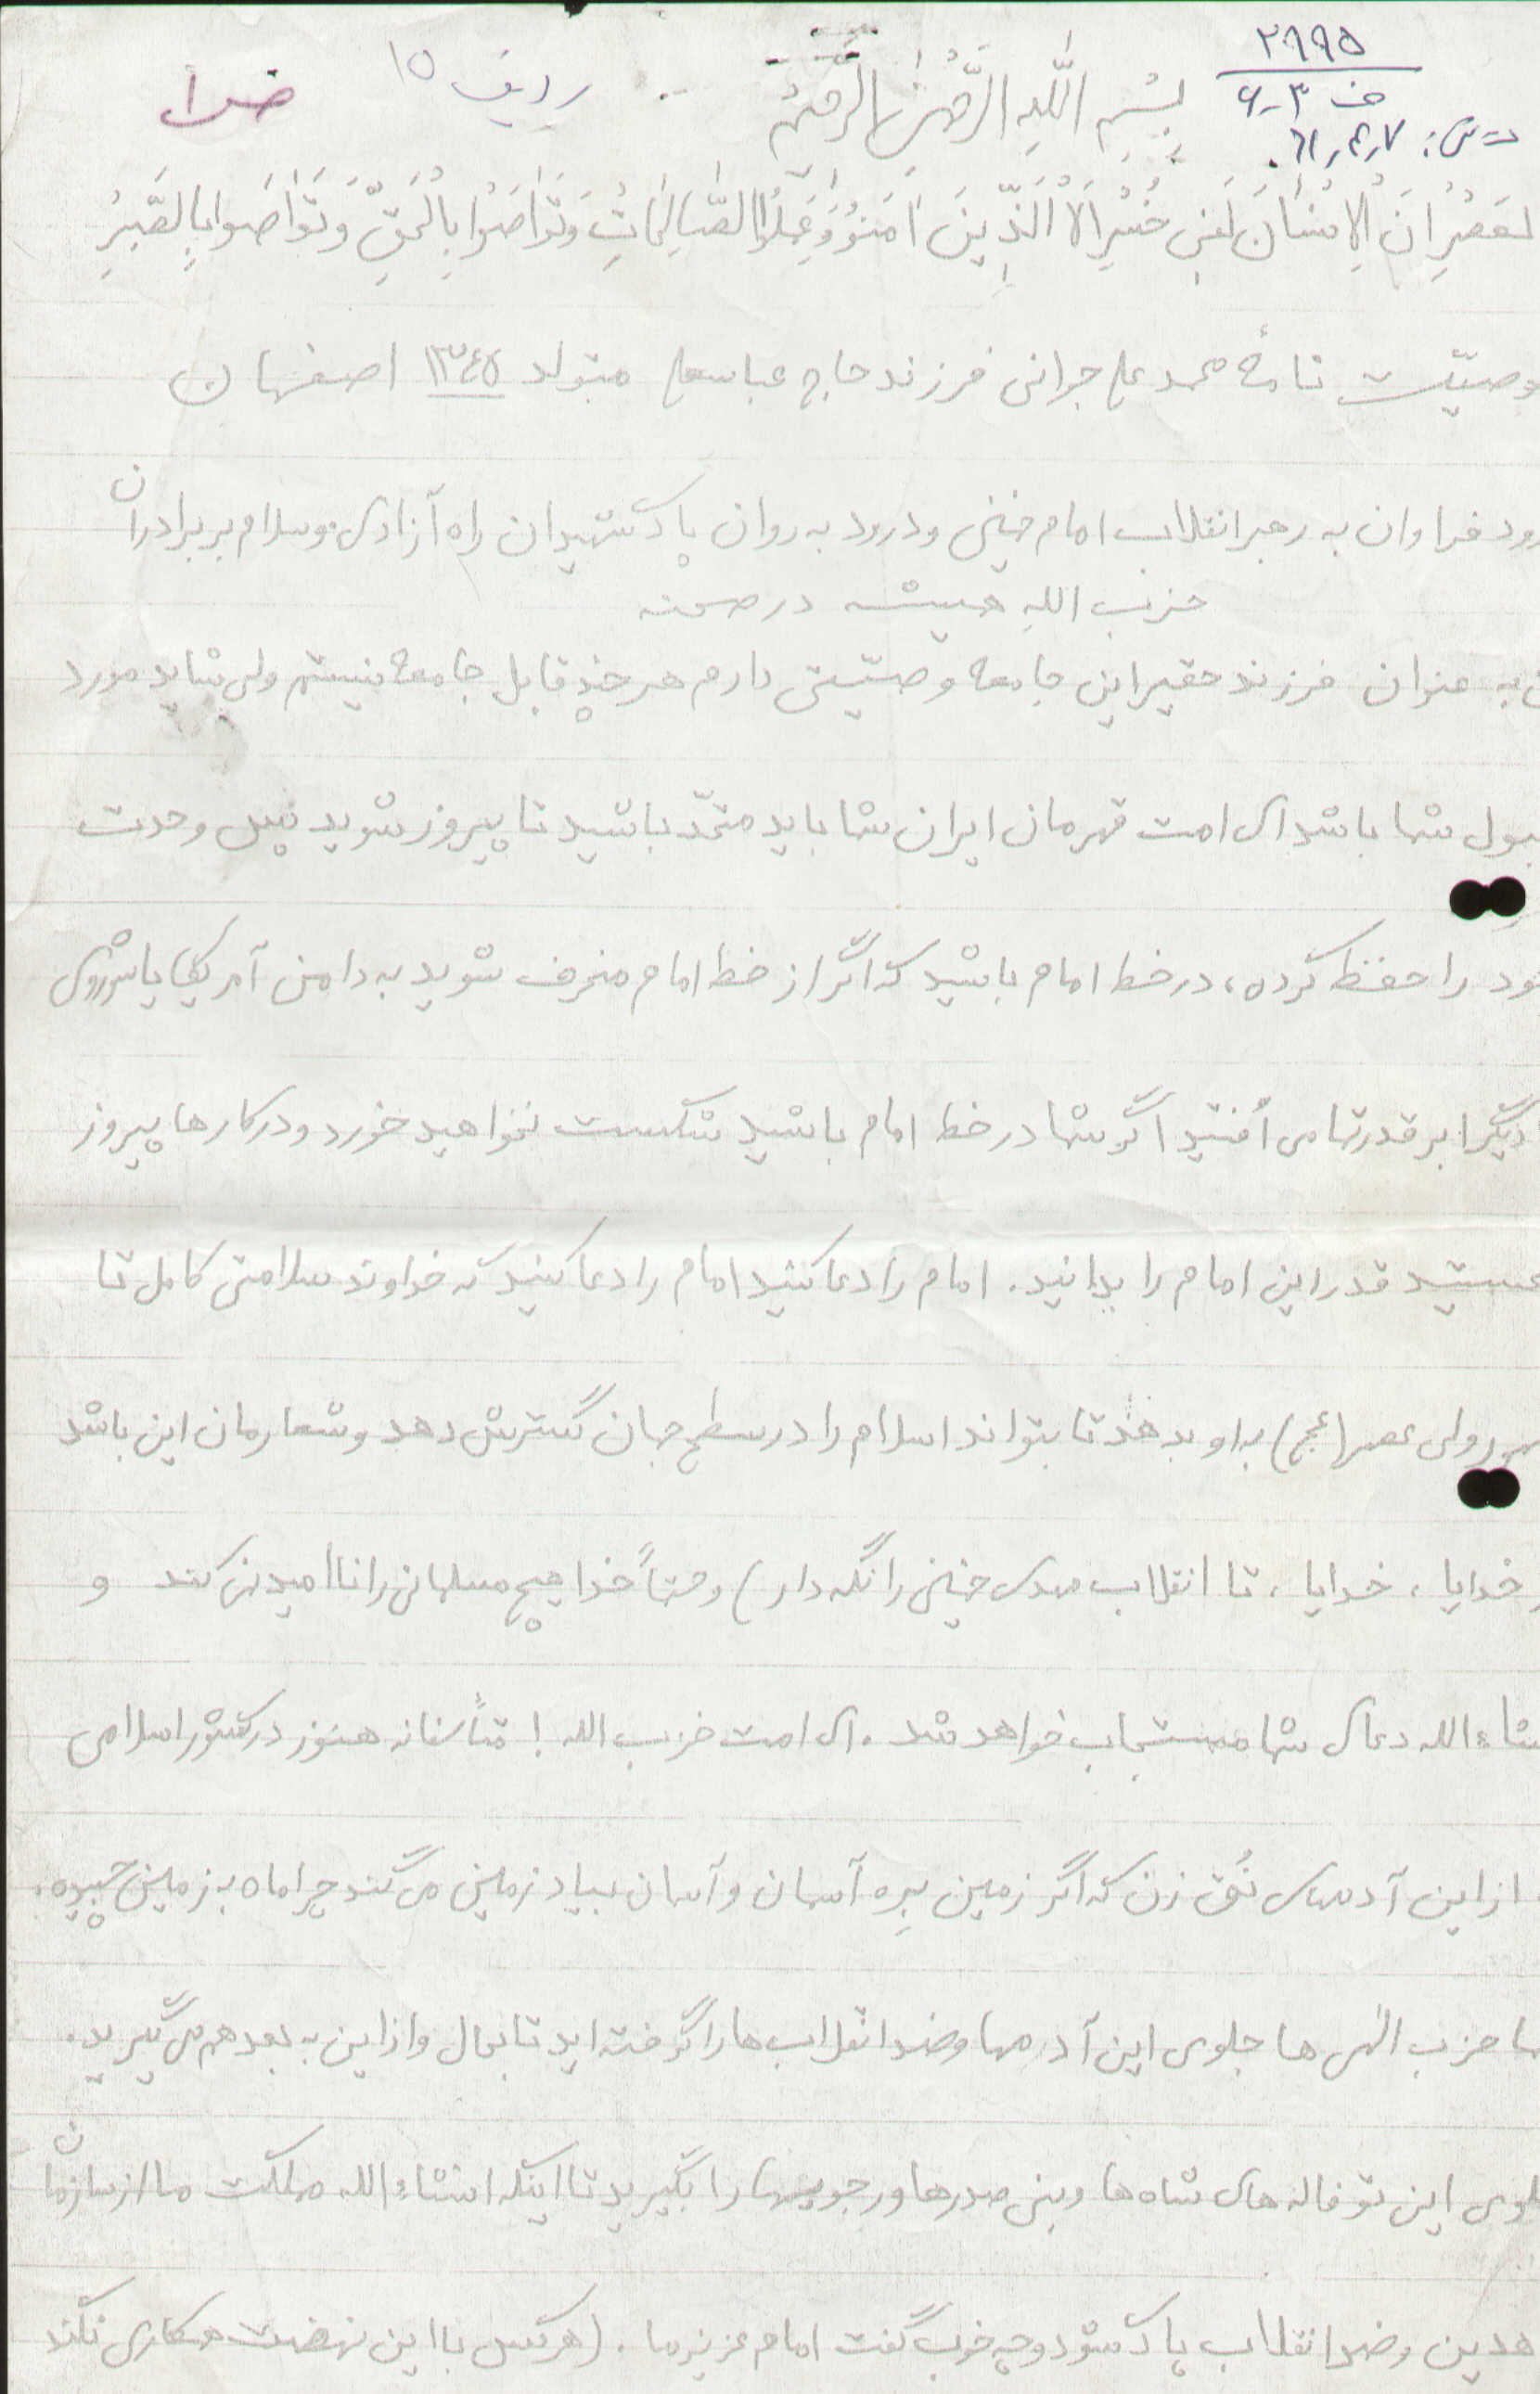 ۲۹۹۵
ردیف ۱۵
بِسْمِ اللَّهِ الرَّحْمنِ الرَّحیمْ
لعَصْرِ اِنَ الْاِنْسٰانَ لَفی خُسْرٍ اِلاَ الَّذّینَ اٰمَنوُ وَعَمِلُوا الصّالِحٰاتِ وَتَوٰاصَوْا بِالْحَقِّ وَ تَوٰاصَوا بِالصَّبْرِ
وصیّت نامهٔ محمد علی جرانی فرزند حاج عباسعلی متولد ۱۳۴۵ اصفهان
رود فراوان به رهبر انقلاب امام خمینی و درود به روان پاک شهیدان راه آزادی و سلام بر برادران
حزب الله همیشه در صحنه
ن به عنوان فرزند حقیر این جامعه وصیّتی دارم هر چند قابل جامعه نیستم ولی شاید مورد
بول شما باشد ای امت قهرمان ایران شما باید متحّد باشید تا پیروز شوید پس وحدت
ود را حفظ کرده، در خط امام باشید که اگر از خط امام منحرف شوید به دامن آمریکا یا شوروی
ا دیگر ابر قدرتها می اُفتید اگر شما در خط امام باشید شکست نخواهید خورد و در کارها پیروز
هستید قدر این امام را بدانید. امام را دعا کنید امام را دعا کنید که خداوند سلامتی کامل تا
ولی عصر (عج) به او بدهد تا بتواند اسلام را در سطح جهان گسترش دهد و شعارمان این باشد
خدایا، خدایا، تا انقلاب مهدی خمینی را نگه دار) و حتماً خدا هیچ مسلمانی را ناامید نمی کند و
شاءالله دعای شما مستجاب خواهد شد. ای امت حزب الله! متأسفانه هنوز در کشور اسلامی
از این آدمهای نُق زن که اگر زمین بِره آسمان و آسمان بیاد زمین می گند چرا ماه به زمین چسبیده.
ما حزب الهی ها جلوی این آدمها و ضد انقلاب ها را گرفته اید تا بحال و از این به بعد هم می گیرید.
لوی این تفاله های شاه ها و بنی صدرها و رجویها را بگیرید تا اینکه انشاءالله مملکت ما از سازمان
هدین و ضد انقلاب پاک شود و چه خوب گفت امام عزیز ما. (هر کس با این نهضت همکاری نکند